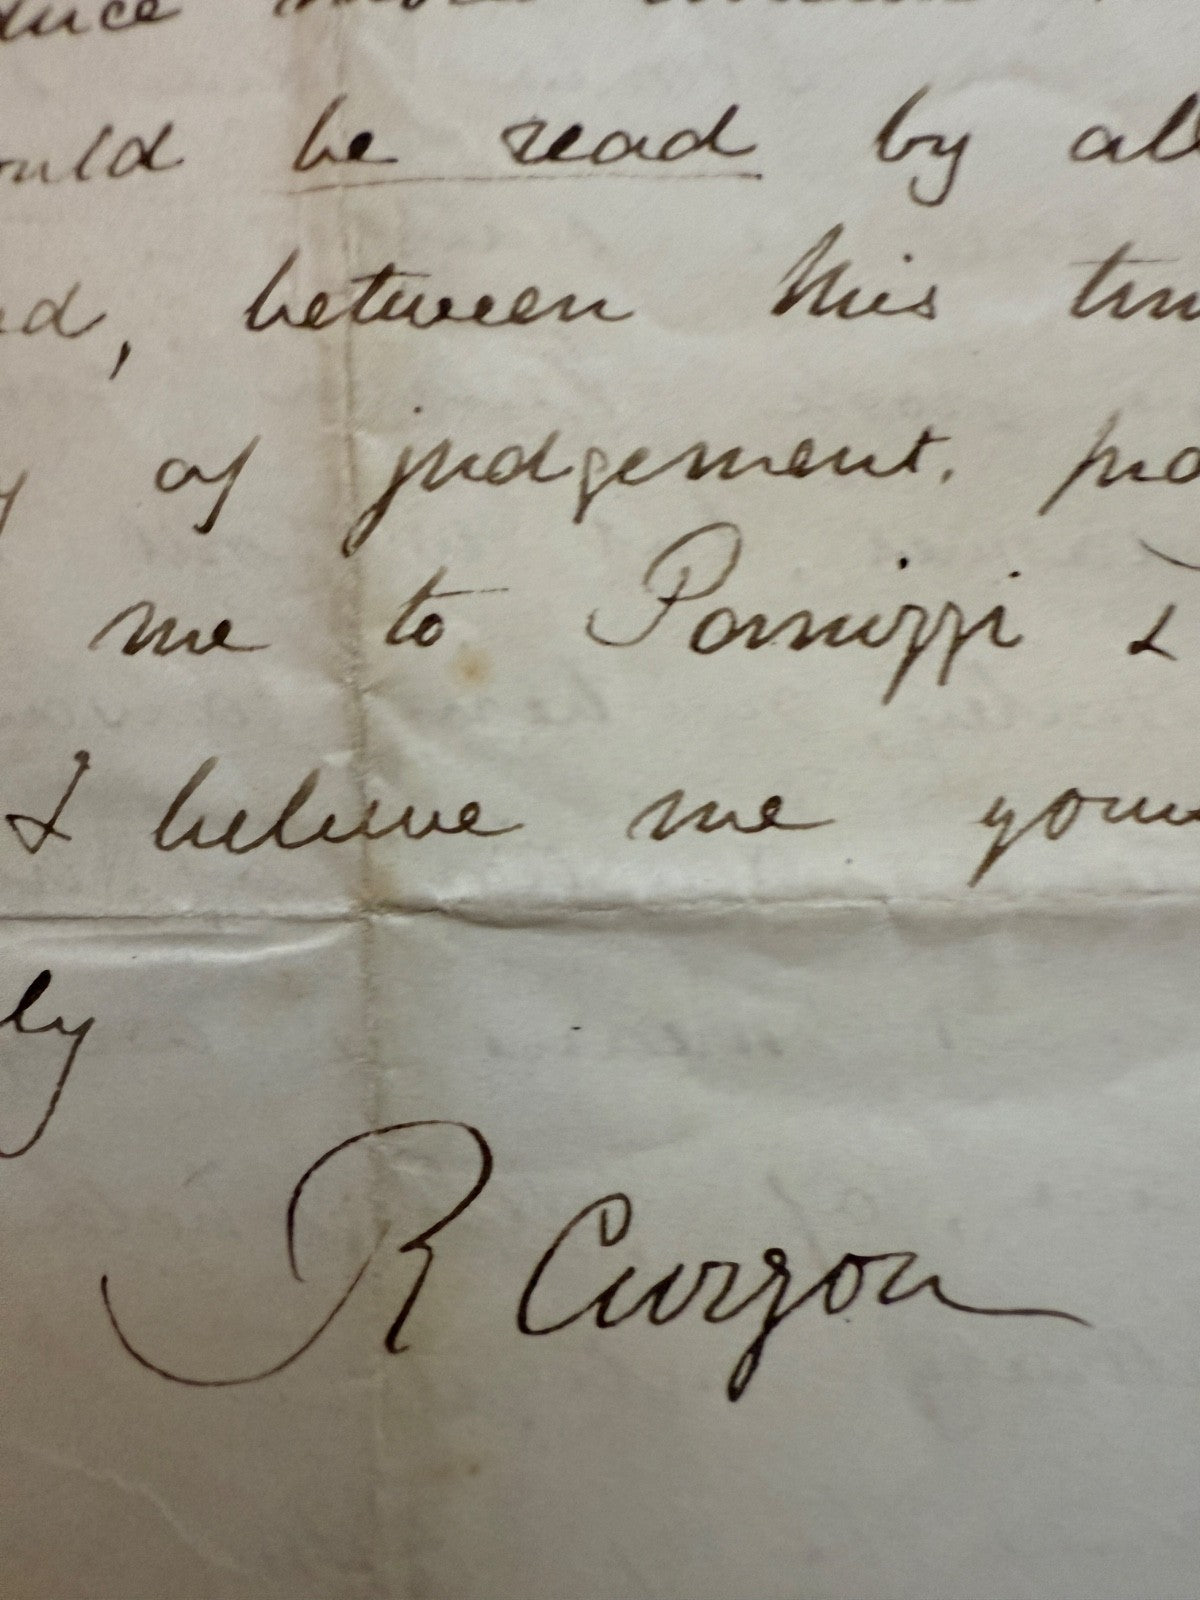 be read by all
between this
of judgement.
me to Pannizzi &
I believe me yours
ly
R Curzon